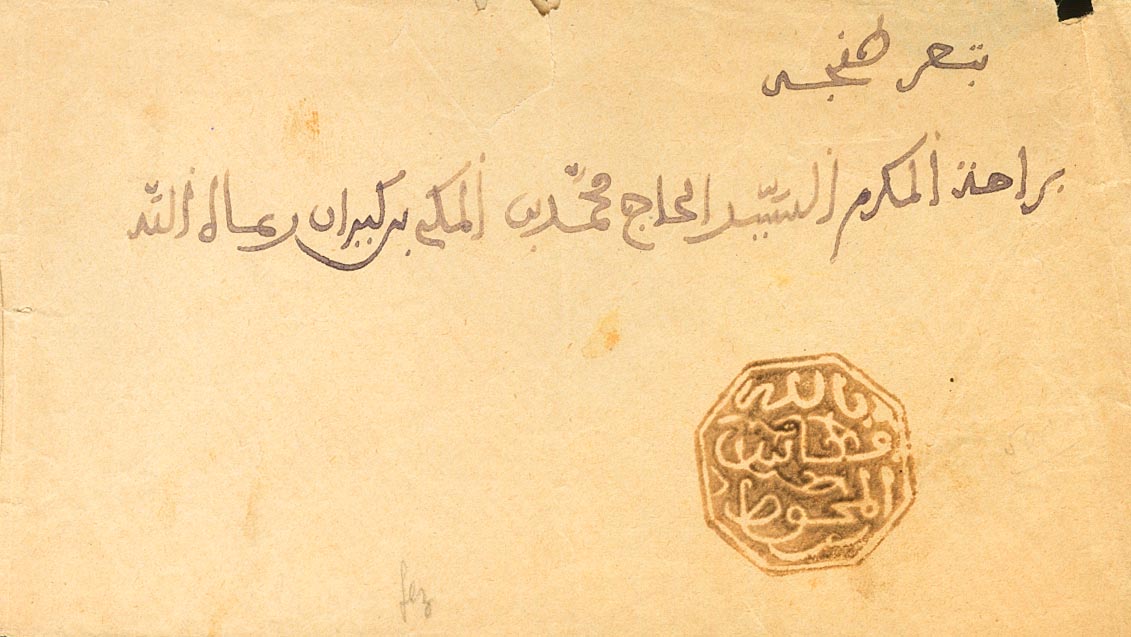 بثغر طنجة
براحة المكرم السيد الحاج محمد بن المكي بن كيران رعاه الله
بالله
fez